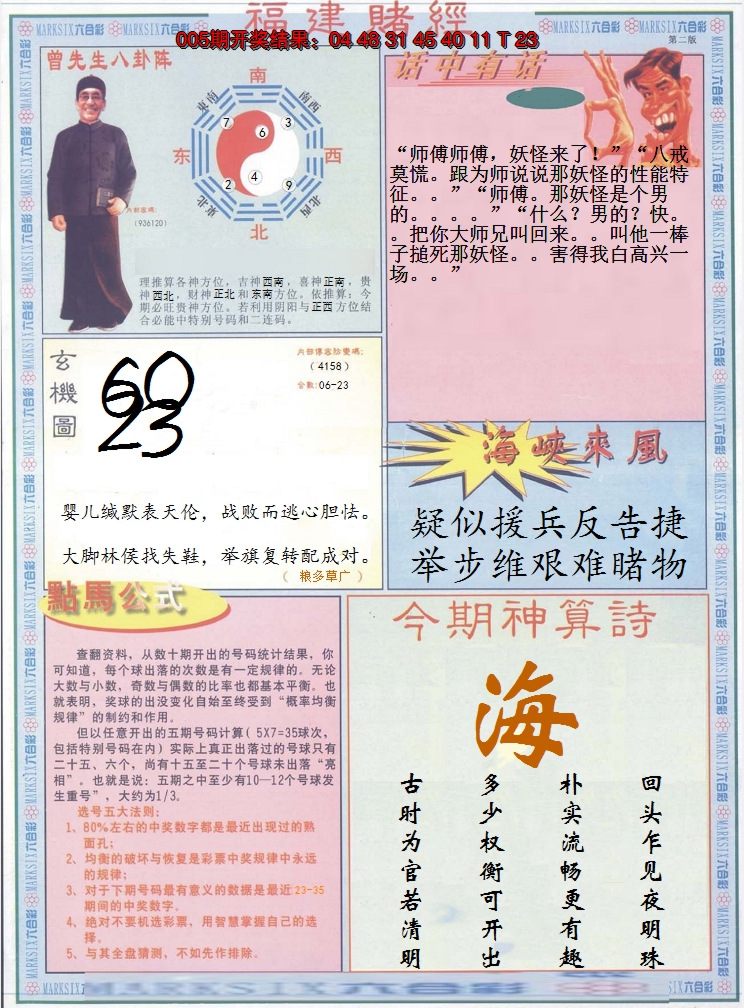 福建賭經
005期开奖结果：04 48 31 45 40 11 T 23
MARKSIX六合彩
第二版
曾先生八卦阵
南
东南
南西
7
3
6
东
西
4
2
9
东北
北西
北
内部密碼:
(936120)
理推算各神方位，吉神西南，喜神正南，贵
神西北，财神正北和东南方位。依推算：今
期必旺贵神方位。若利用阴阳与正西方位结
合必能中特别号码和二连码。
话中有话
“师傅师傅，妖怪来了！”“八戒
莫慌。跟为师说说那妖怪的性能特
征。。”“师傅。那妖怪是个男
的。。。。”“什么？男的？快。
。把你大师兄叫回来。。叫他一棒
子搥死那妖怪。。害得我白高兴一
场。。”
玄機圖
60
23
（4158）
合数:06-23
婴儿缄默表天伦，战败而逃心胆怯。
大脚林侯找失鞋，举旗复转配成对。
（ 粮多草广 ）
海峡來風
疑似援兵反告捷
举步维艰难睹物
點馬公式
查翻资料，从数十期开出的号码统计结果，你
可知道，每个球出落的次数是有一定规律的。无论
大数与小数，奇数与偶数的比率也都基本平衡。也
就表明，奖球的出没变化自始至终受到“概率均衡
规律”的制约和作用。
但以任意开出的五期号码计算（ 5X7=35球次，
包括特别号码在内）实际上真正出落过的号球只有
二十五、六个，尚有十五至二十个号球未出落“亮
相”。也就是说：五期之中至少有10—12个号球发
生重号”，大约为1/3。
选号五大法则：
1、80%左右的中奖数字都是最近出现过的熟
面孔；
2、均衡的破坏与恢复是彩票中奖规律中永远
的规律；
3、对于下期号码最有意义的数据是最近23-35
期间的中奖数字。
4、绝对不要机选彩票，用智慧掌握自己的选
择。
5、与其全盘猜测，不如先作排除。
今期神算詩
海
回头乍见夜明珠
朴实流畅更有趣
多少权衡可开出
古时为官若清明